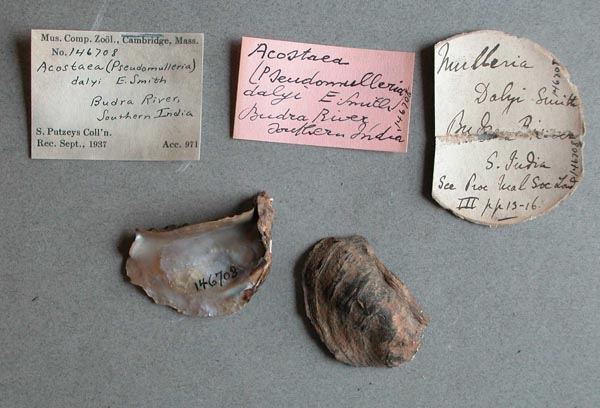 Mus. Comp. Zoöl., Cambridge, Mass.
No. 146708
Acostaea (Pseudomulleria)
dalyi E. Smith
Budra River,
Southern India
S. Putzeys Coll'n.
Rec. Sept., 1937 Acc. 971
Acostaea
(Pseudomulleria)
dalyi E Smith
Budra River
Southern India
146708
Mulleria
Dalyi Smith
Budra River
S. India
See Proc Mal Soc Lon
III pp 13-16.
146708
146708
146708